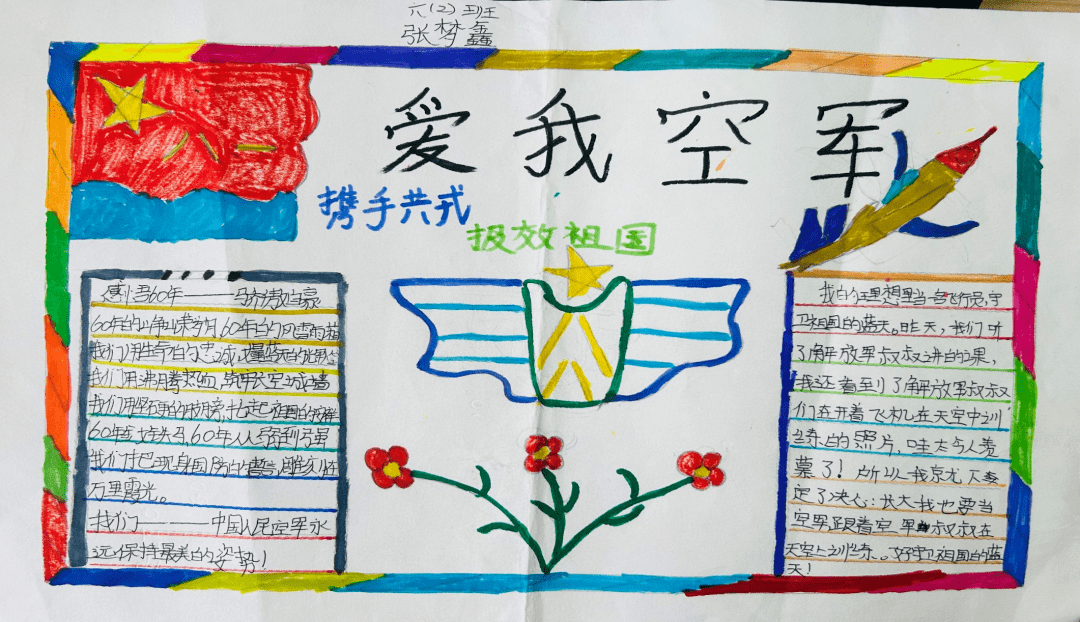 六(2)班
张梦鑫
八一
爱我空军
携手共戎
报效祖国
感悟60年———骄傲自豪
60年的峥嵘岁月,60年的风雪雨霜
我们用生命的忠诚,丈量蓝天的
我们用沸腾热血,筑牢长空城墙
我们用坚硬的脊梁,托起祖国的
60年
我们
万里霞光。
我们———中国人民空军永
远保持最美的姿势!
我的理想是当一名飞行员,守
卫祖国的蓝天。昨天,我们听
了解放军叔叔讲的课,
我还看到了解放军叔叔
们在开着飞机在天空中训
练的照片,哇太令人羡
慕了!所以我
定了决心:长大我也要当
空军,跟着空军叔叔在
天空上训练。好守卫祖国的蓝
天!